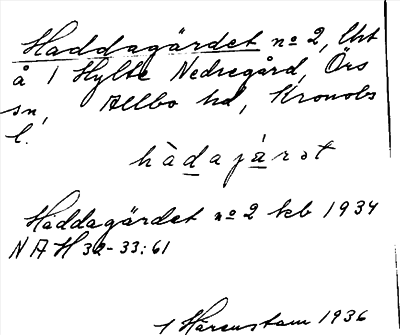 Haddagärdet nº 2, lht
å 1 Hylte Nedregård, Örs
sn, Allbo hd, Kronobs
l.
hàdajárət
Haddagärdet nº 2 kb 1934
NAH 32-33:61
1 Härenstam 1936